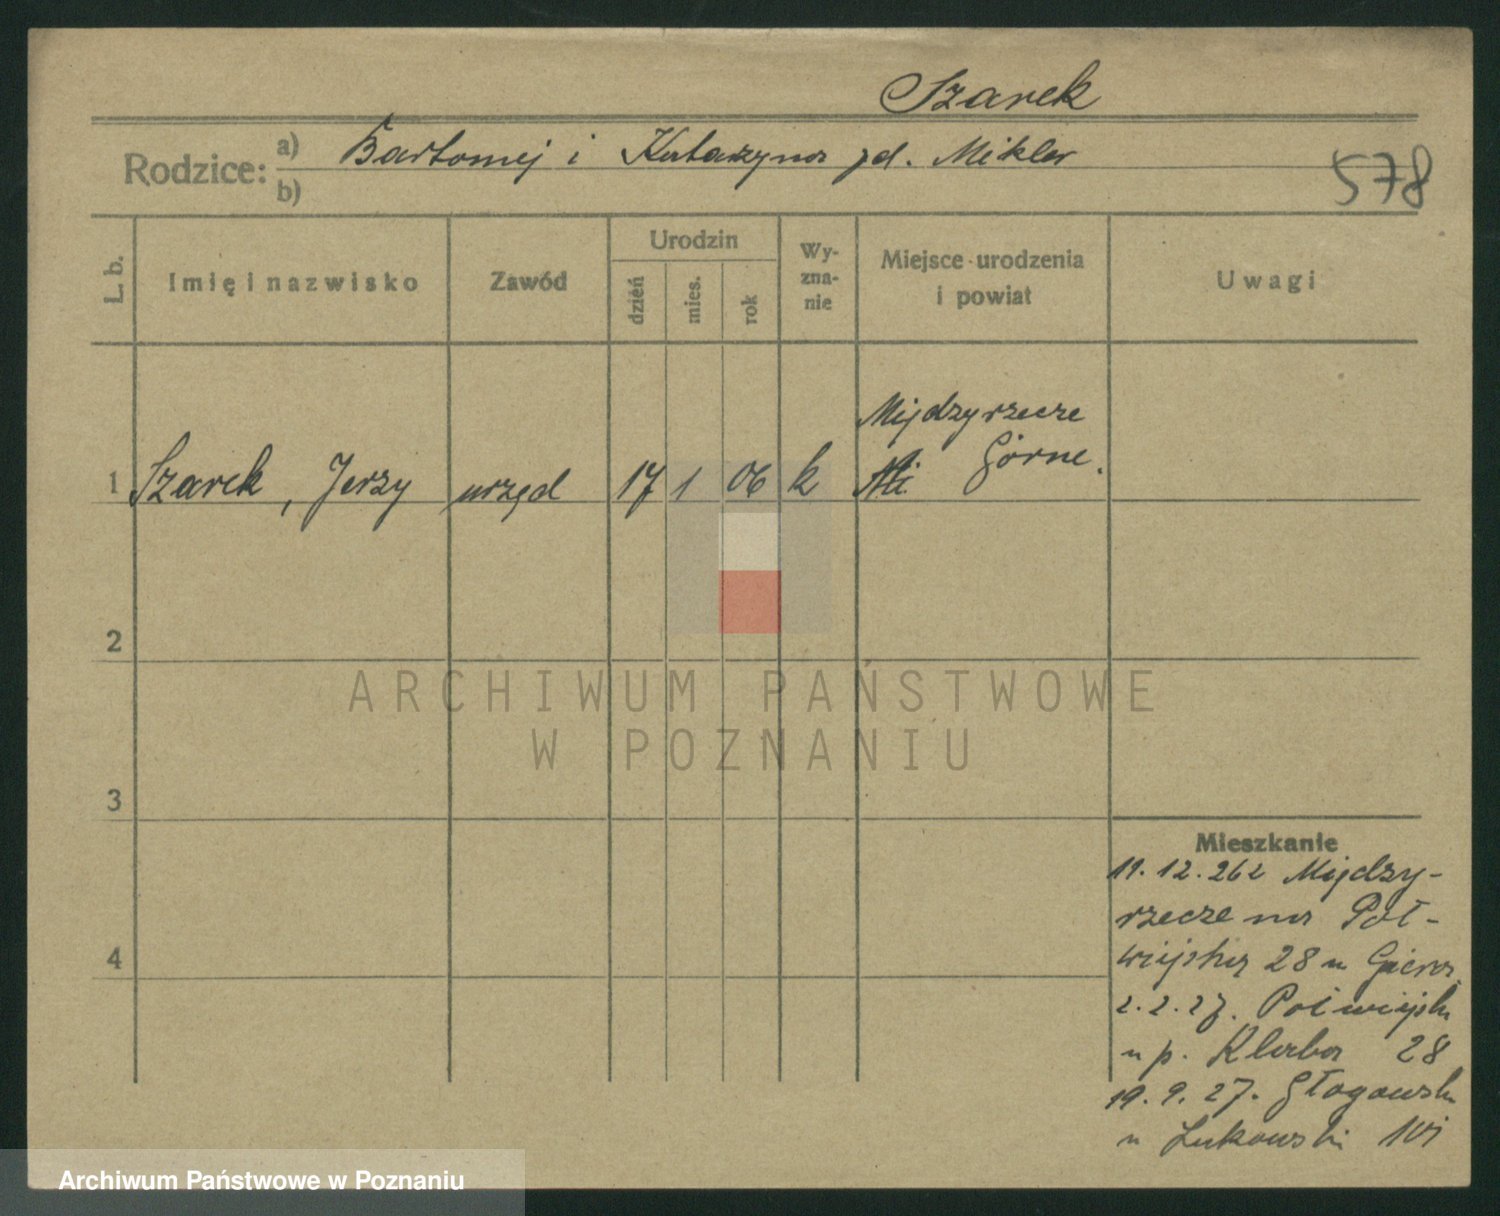 Szarek
Rodzice: a) Bartomej i Katarzyna zd. Mikler
b)
578
L. b.
Imię i nazwisko
Zawód
Urodzin
dzień
mies.
rok
Wy-
zna-
nie
Miejsce urodzenia
i powiat
Uwagi
Międzyrzecze
Górne.
1 Szarek, Jerzy urzęd 17 1 06 k
2
ARCHIWUM PAŃSTWOWE
W POZNANIU
3
Mieszkanie
11.12.26 z Między-
rzecze na Pół-
wiejską 28 u
4
2.2.27. Półwiejsk
u p. 28
19.9.27. Głogowsk
u Łukowski
Archiwum Państwowe w Poznaniu